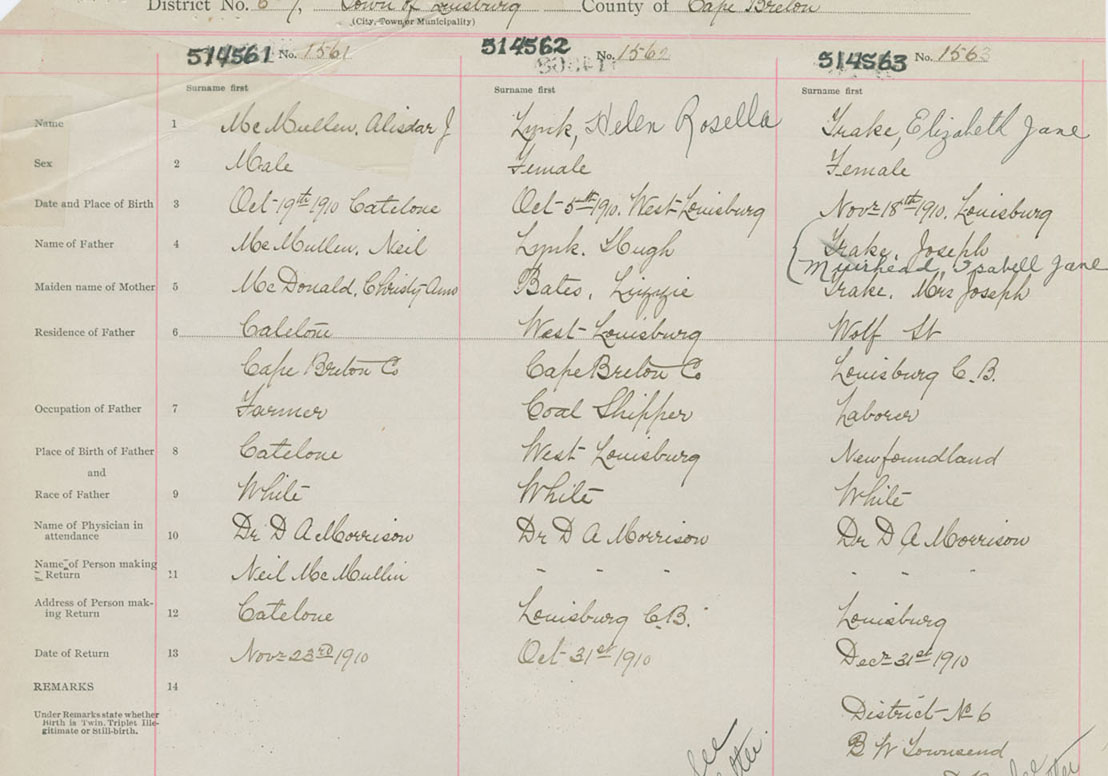 District No. 6 Town of Louisburg County of Cape Breton
(City, Town or Municipality)
514561 No. 1561 514562 No. 1562 514563 No. 1563
Surname first Surname first Surname first
Name 1 McMullen, Alisdar J Lynk, Helen Rosella Trake, Elizabeth Jane
Sex 2 Male Female Female
Date and Place of Birth 3 Oct 19th 1910 Catelone Oct 5th 1910. West Louisburg Novr 18th 1910. Louisburg
Name of Father 4 McMullen, Neil Lynk. Hugh Trake, Joseph
Muirhead, Isabell Jane
Maiden name of Mother 5 McDonald, Christy Ann Bates, Lizzie Trake. Mrs Joseph
Residence of Father 6 Catelone West Louisburg Wolf St
Cape Breton Co Cape Breton Co Louisburg C.B.
Occupation of Father 7 Farmer Coal Shipper Laborer
Place of Birth of Father 8 Catelone West Louisburg Newfoundland
and
Race of Father 9 White White White
Name of Physician in
attendance 10 Dr D A Morrison Dr D A Morrison Dr D A Morrison
Name of Person making
Return 11 Neil McMullin - - - - - -
Address of Person mak-
ing Return 12 Catelone Louisburg C.B. Louisburg
Date of Return 13 Novr 23rd 1910 Oct 31st 1910 Decr 31st 1910
REMARKS 14
Under Remarks state whether
Birth is Twin, Triplet Ille-
gitimate or Still-birth.
District No 6
B W Townsend